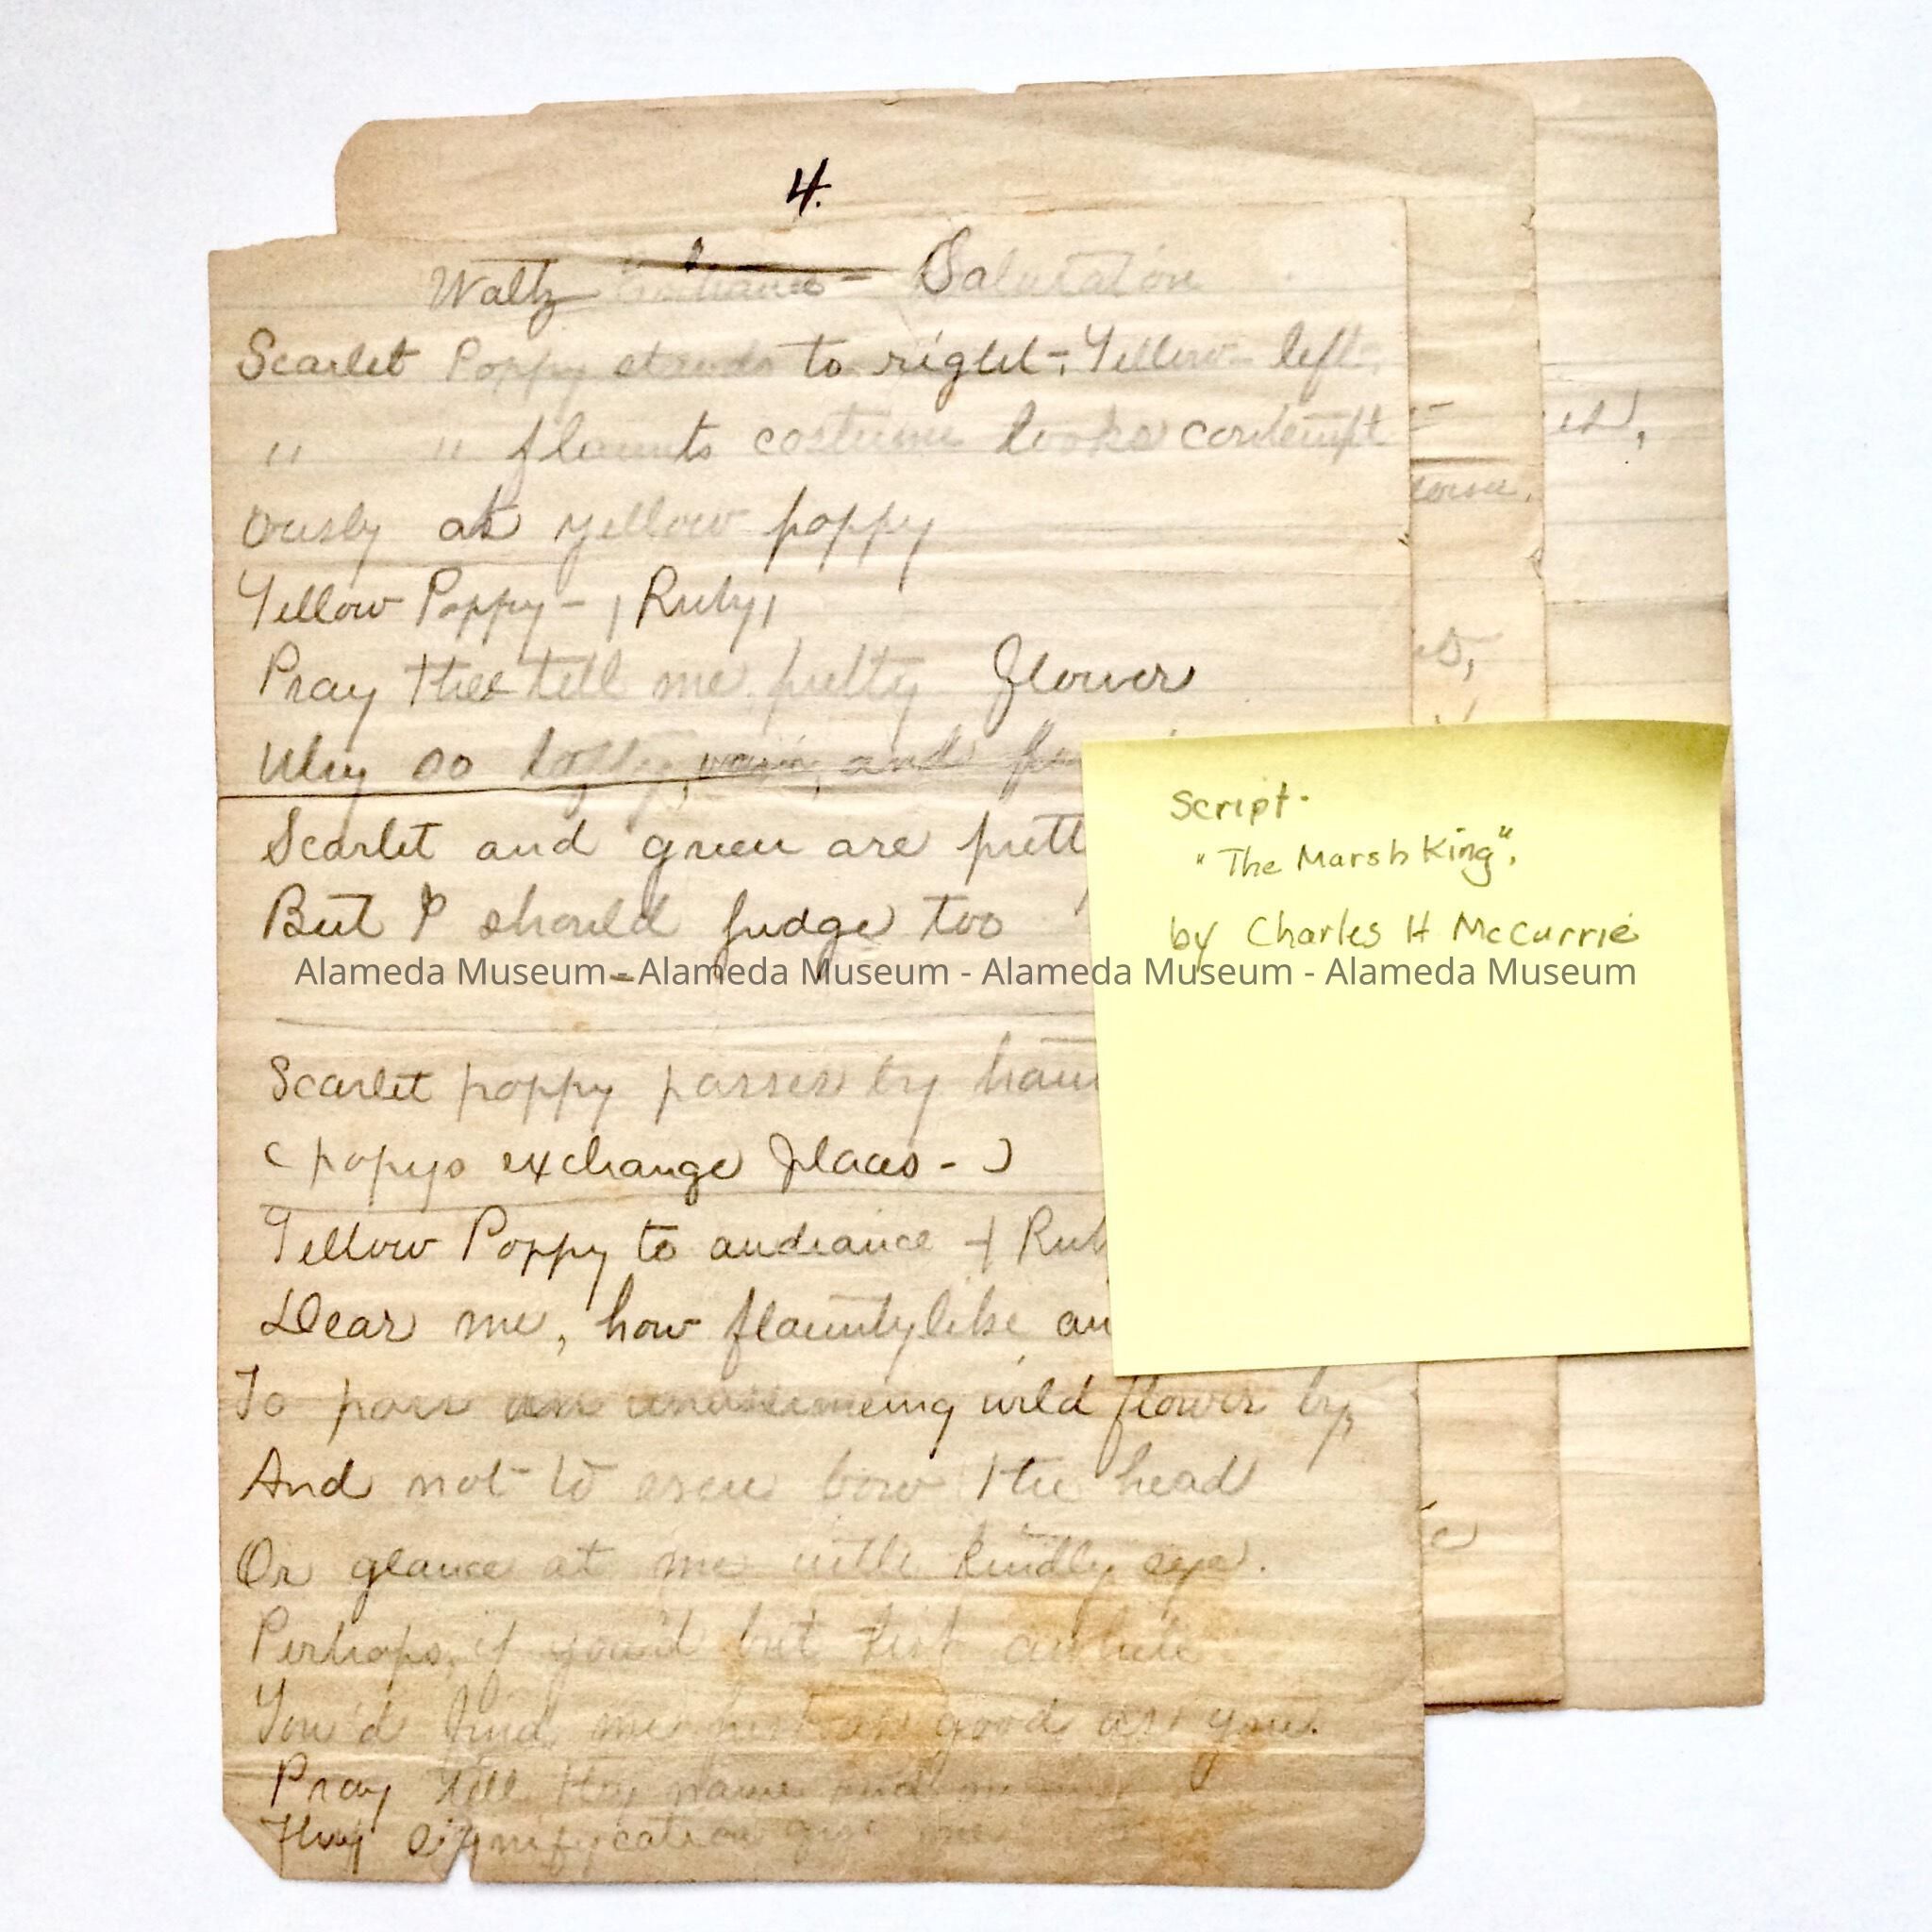 4.
Waltz Entrance - Salutation
Scarlet Poppy stands to right -, Yellow - left.
" " flaunts costume looks contempt
ously at yellow poppy
Yellow Poppy - (Ruby)
Pray thee tell me pretty flower
Why so lofty, vain, and
Scarlet and green are
But I should judge too
Scarlet poppy passes by
(popys exchange places - )
Yellow Poppy to audiance -
Dear me, how flauntylike
To pass an unassumeing wild flower by,
And not to even bow the head
Or glance at me with kindly eye.
Perhaps, if you'd but awhile
You'd find me just as good as you.
Pray tell thy name and
Thy signifycation give me
Script-
"The Marsh King".
by Charles H McCurrie
Alameda Museum - Alameda Museum - Alameda Museum - Alameda Museum